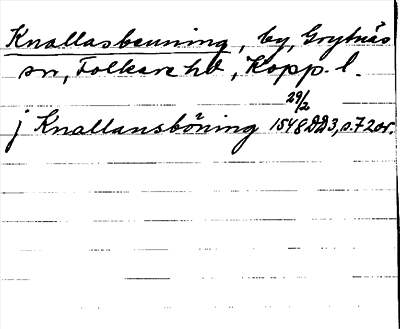 Knallasbenning, by, Grytnäs
sn, Folkare hd, Kopp. l.
29/2
j Knallansböning 1548 DD3, s. 72 or.